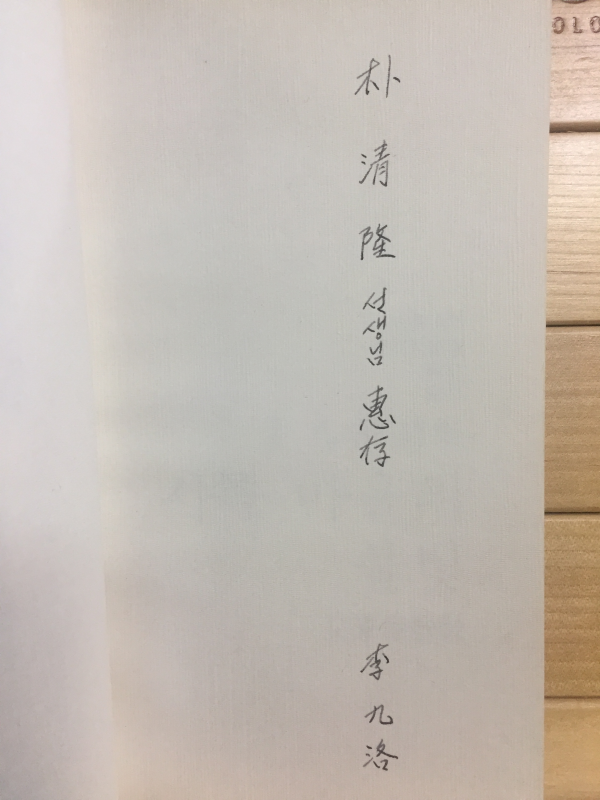 朴清隆 선생님 惠存
李九洛
OLO